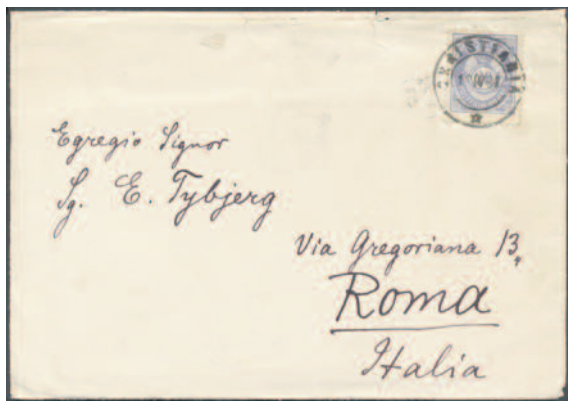 CHRISTIANIA
Egregio Signor
Sg. E. Tybjerg
Via Gregoriana 13,
Roma
Italia